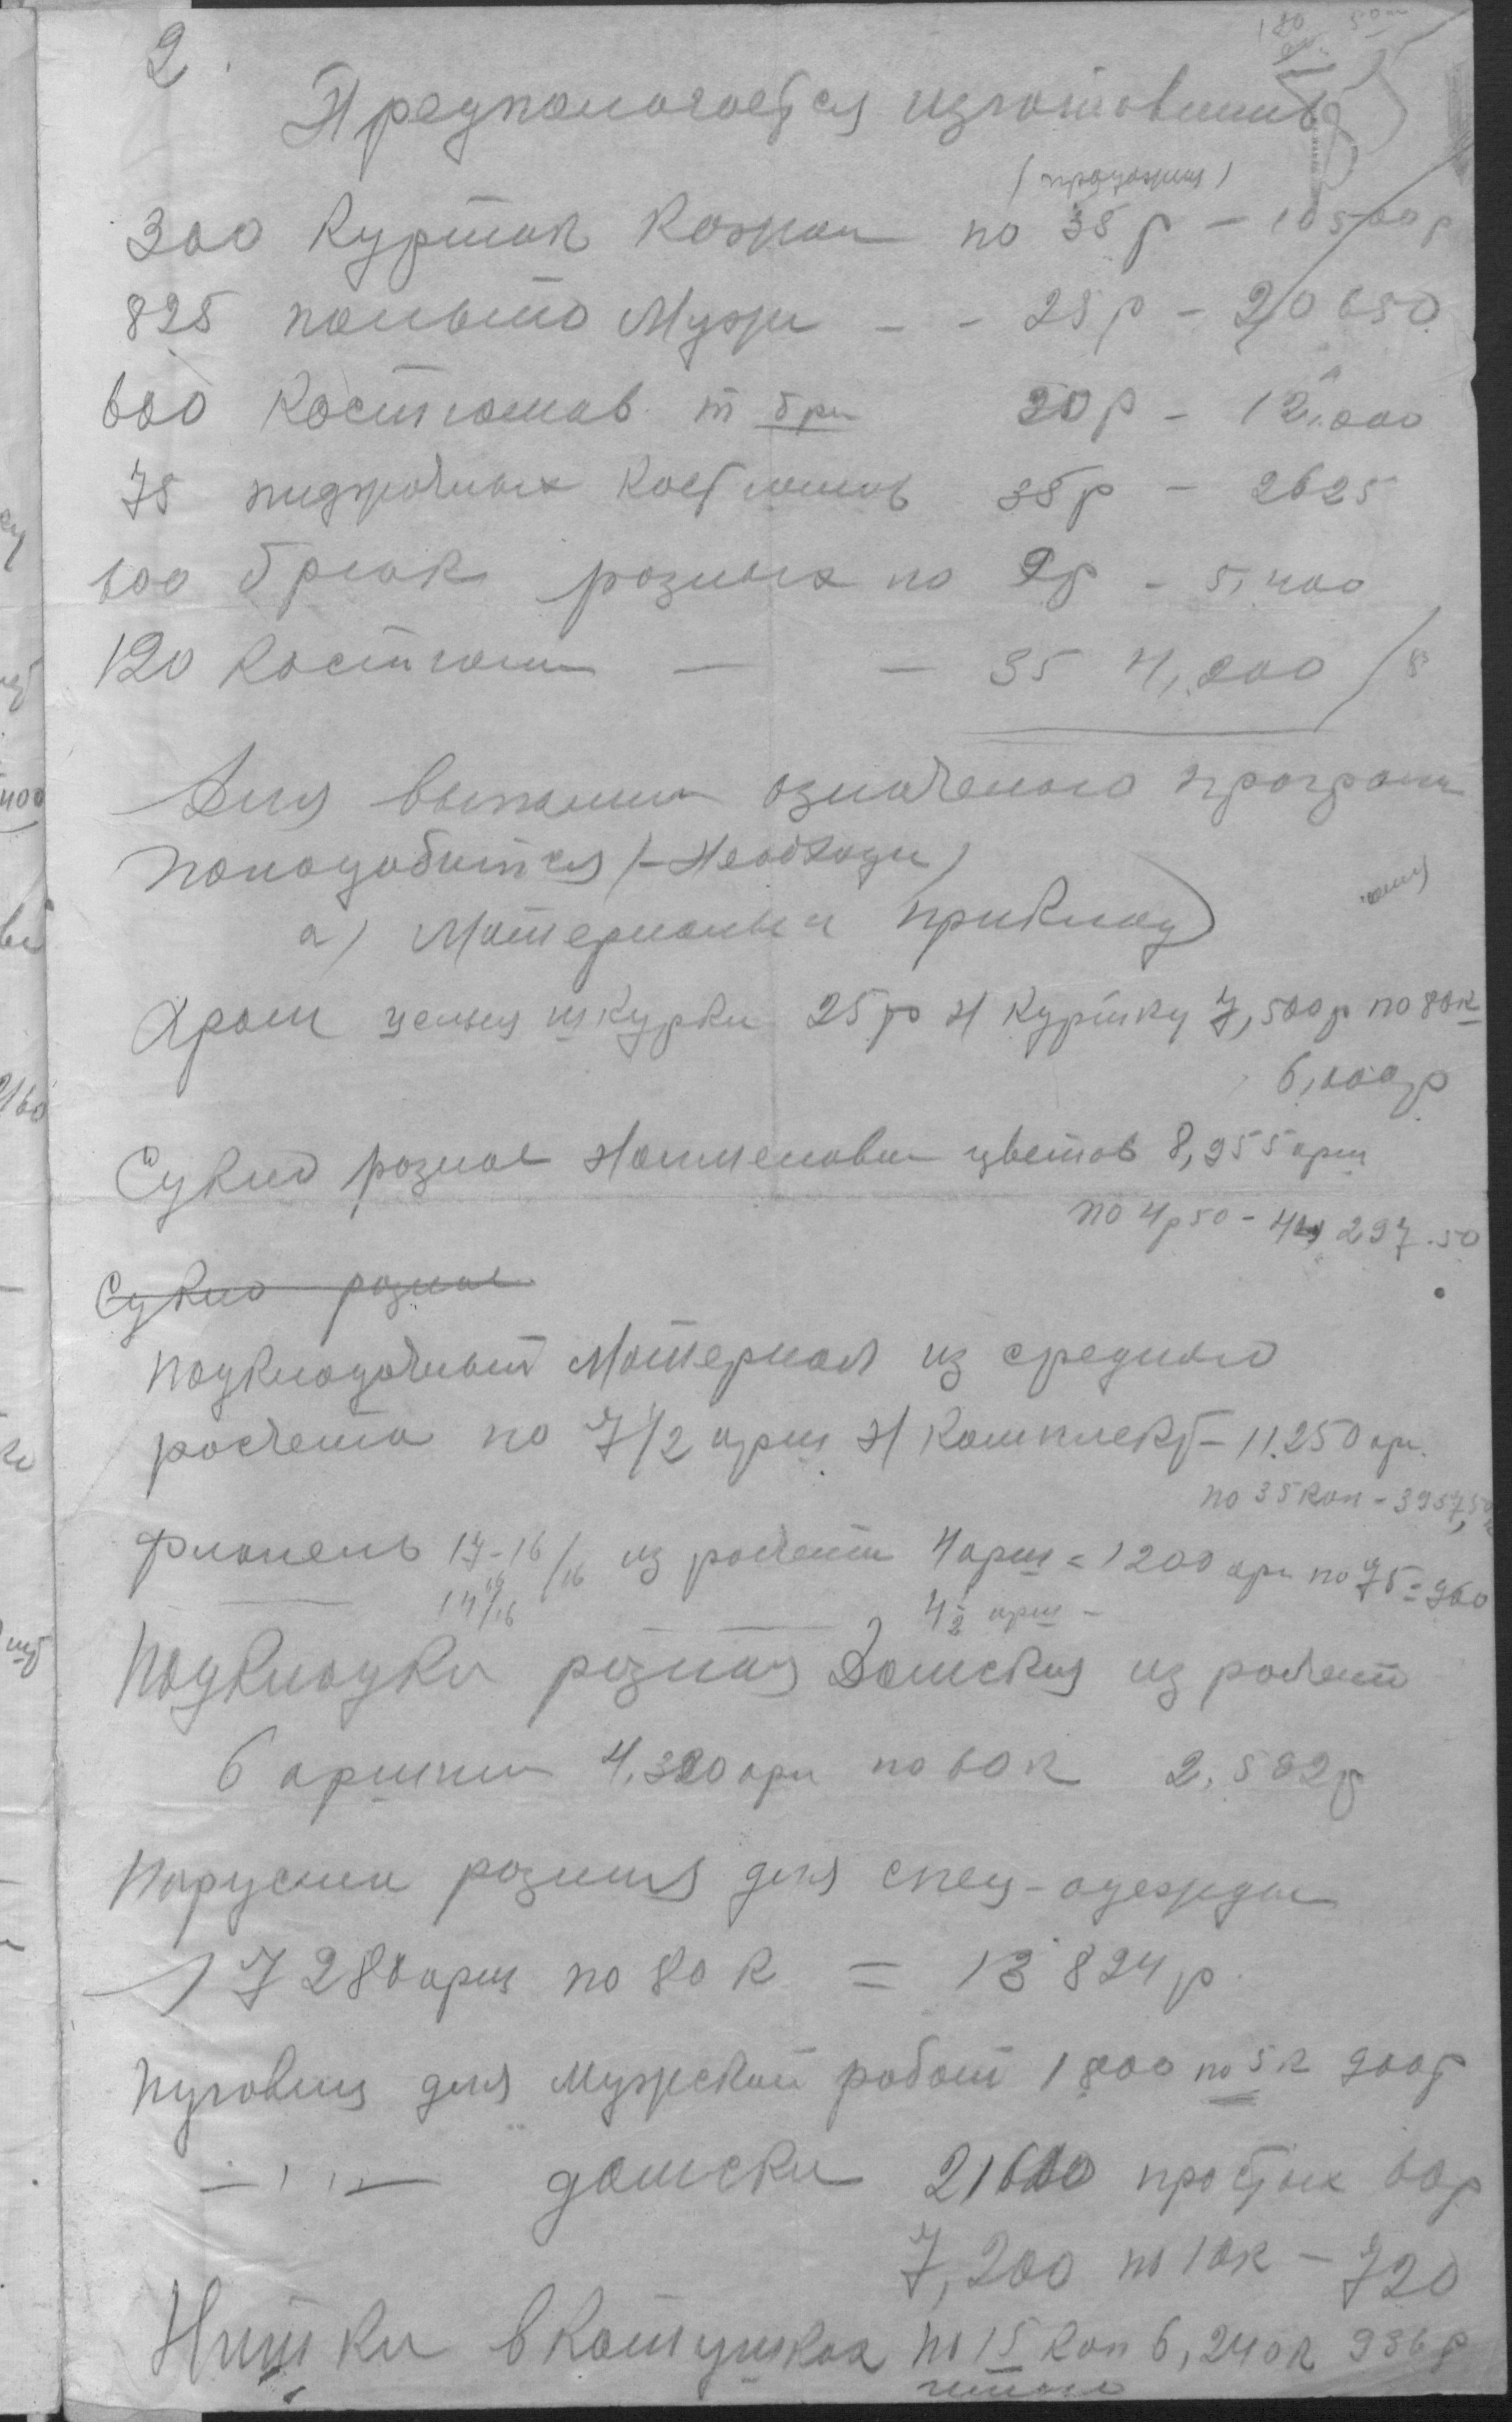 2.
Предпологается изготовить
300 Курток Кожан по 35 р – 10500 р
825 пальто Мужи – – 25 р – 20650.
600 Костюмов т бри 20 р – 12.000
75 пиджачных Костюмов 35 р – 2625
600 брюк разных по 9 р – 5,400
120 Костюм – – 35 4,200
Для выполнен означеного програм
понадобится (–Необходи)
а) Материалы и приклад
Хром целыя шкурки 25 ф Н Куртку 7,500 ф по 80 к
6,000 р
Сукно разное Наименован цветов 8,955 арш
по 4 р 50 – 297.50
Сукно разное
Подкладочный Материал из среднего
расчета по 7 1/2 арш Н Комплект – 11.250 ар.
по 35 коп – 3957,5
Фланель 17–16/16 из расчета 4 арш = 1200 арш по 75 = 960
14/16 4 1/2 арш –
Подкладки разная Дамския из расчета
6 аршин 4,320 арш по 60 к 2,592 р
Парусина разная для спец-одежды
17280 арш по 80 к = 13824 р.
Пуговиц для Мужской работ 1800 по 5 к 900 р
– " – дамски 21600 простых 60 р
7,200 по 10 к – 720
Нитки в Катушках по 15 коп 6,240 к 936 р